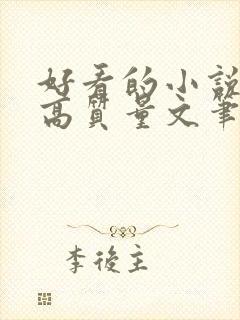 好看的小説
高質量文筆
李後主